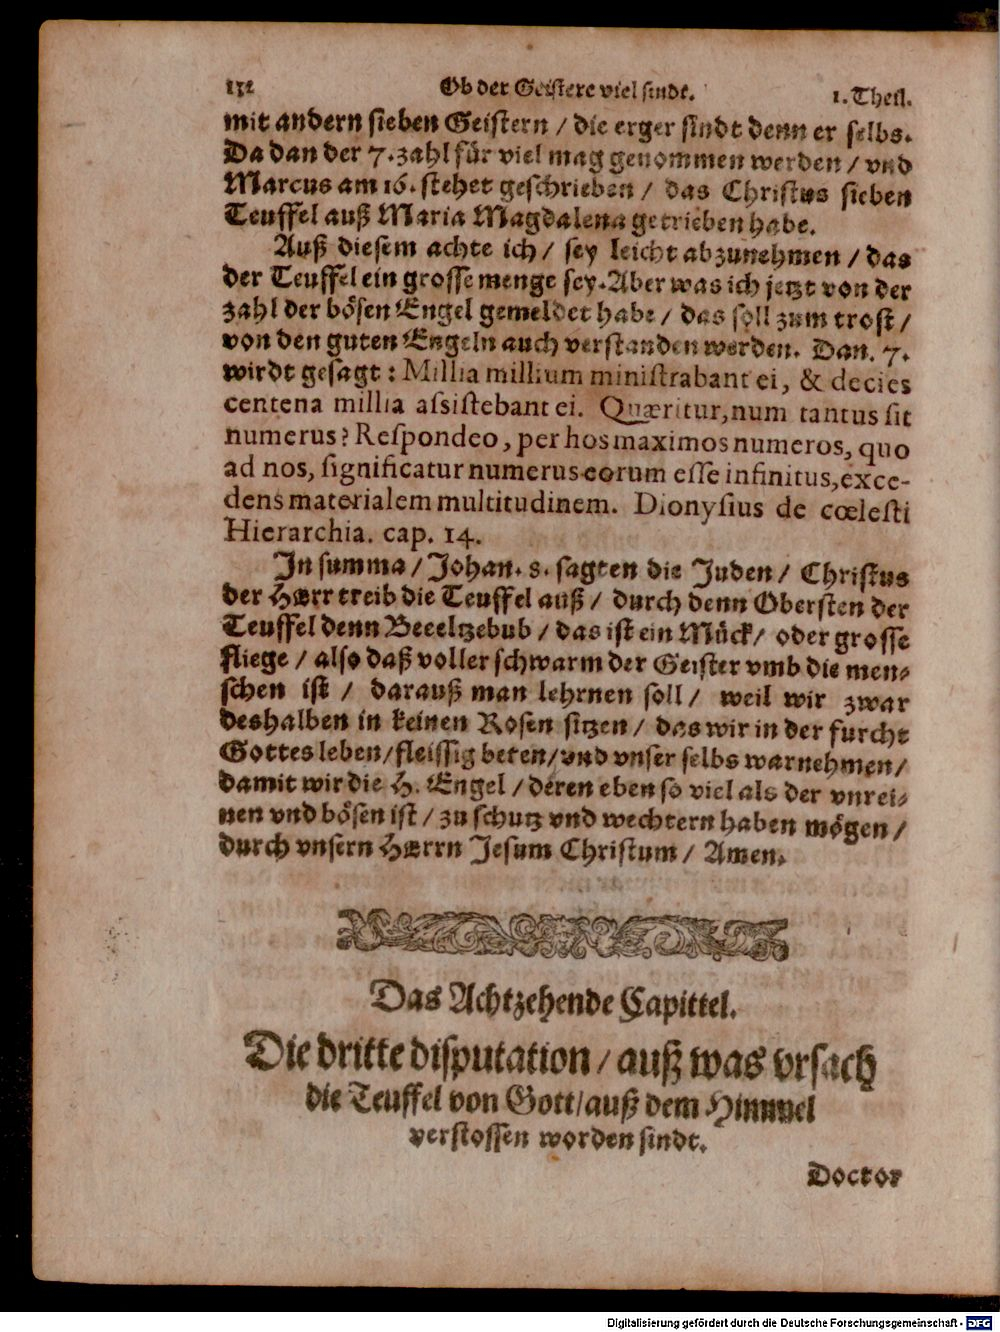 152 Ob der Geistere viel sindt. 1. Theil.
mit andern sieben Geistern / die erger sindt denn er selbs.
Da dan der 7. zahl für viel mag genommen werden / vnd
Marcus am 16. stehet geschrieben / das Christus sieben
Teuffel auß Maria Magdalena getrieben habe.
Auß diesem achte ich / sey leicht abzunehmen / das
der Teuffel ein grosse menge sey. Aber was ich jetzt von der
zahl der bösen Engel gemeldet habe / das soll zum trost /
von den guten Engeln auch verstanden werden. Dan. 7.
wirdt gesagt: Millia millium ministrabant ei, & decies
centena millia assistebant ei. Quæritur, num tantus sit
numerus? Respondeo, per hos maximos numeros, quo
ad nos, significatur numerus eorum esse infinitus, exce-
dens materialem multitudinem. Dionysius de cœlesti
Hierarchia. cap. 14.
In summa / Johan. 8. sagten die Juden / Christus
der Herr treib die Teuffel auß / durch denn Obersten der
Teuffel denn Beeltzebub / das ist ein Mück / oder grosse
fliege / also daß voller schwarm der Geister vmb die men-
schen ist / darauß man lehrnen soll / weil wir zwar
deshalben in keinen Rosen sitzen / das wir in der furcht
Gottes leben / fleissig beten / vnd vnser selbs warnehmen /
damit wir die H. Engel / deren eben so viel als der vnrei-
nen vnd bösen ist / zu schutz vnd wechtern haben mögen /
durch vnsern Herrn Jesum Christum / Amen.
Das Achtzehende Capittel.
Die dritte disputation / auß was vrsach
die Teuffel von Gott / auß dem Himmel
verstossen worden sindt.
Doctor
Digitalisierung gefördert durch die Deutsche Forschungsgemeinschaft - DFG